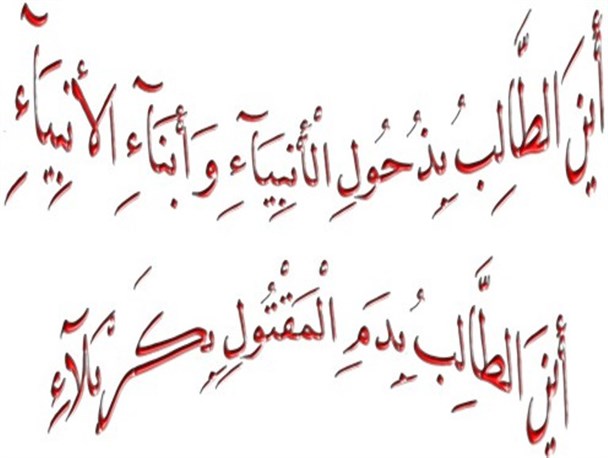 أَيْنَ الطَّالِبُ بِذُحُولِ الْأَنْبِيَآءِ وَ أَبْنَآءِ الأَنبِيَآءِ
أَيْنَ الطَّالِبُ بِدَمِ الْمَقْتُولِ بِكَرْبَلَآءِ